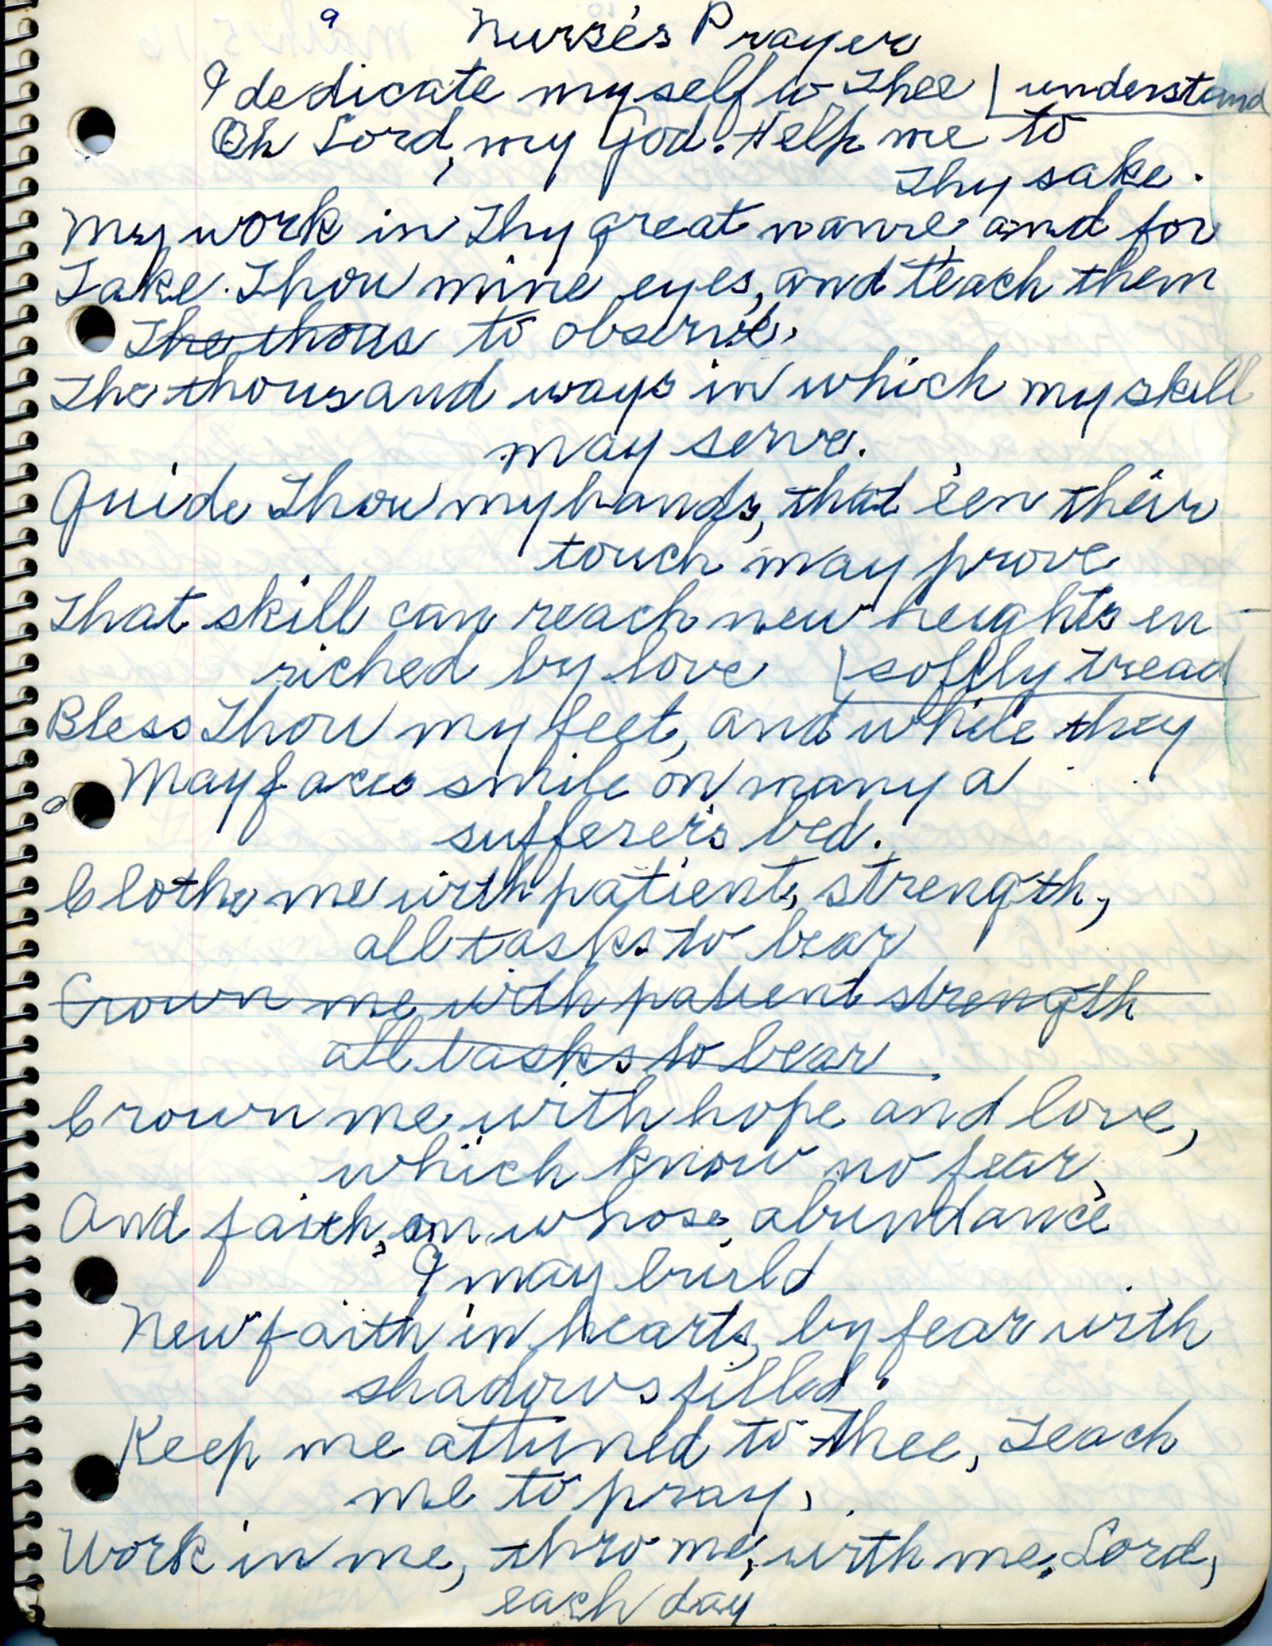 9
Nurse's Prayer
I dedicate myself to Thee | understand
Oh Lord, my God. Help me to
Thy sake.
My work in Thy great name and for
Take Thou mine eyes, and teach them
The thous to observe,
The thousand ways in which my skill
may serve.
Guide Thou my hands, that e'en their
touch may prove
That skill can reach new heights en-
riched by love | softly tread
Bless Thou my feet, and while they
May faces smile on many a
sufferer's bed.
Clothe me with patient, strength,
all tasks to bear
Crown me with patient strength
all tasks to bear.
Crown me with hope and love,
which know no fear,
And faith, on whose abundance
I may build
New faith in hearts, by fear with
shadows filled.
Keep me attuned to Thee, Teach
me to pray,
Work in me, thro me, with me, Lord,
each day